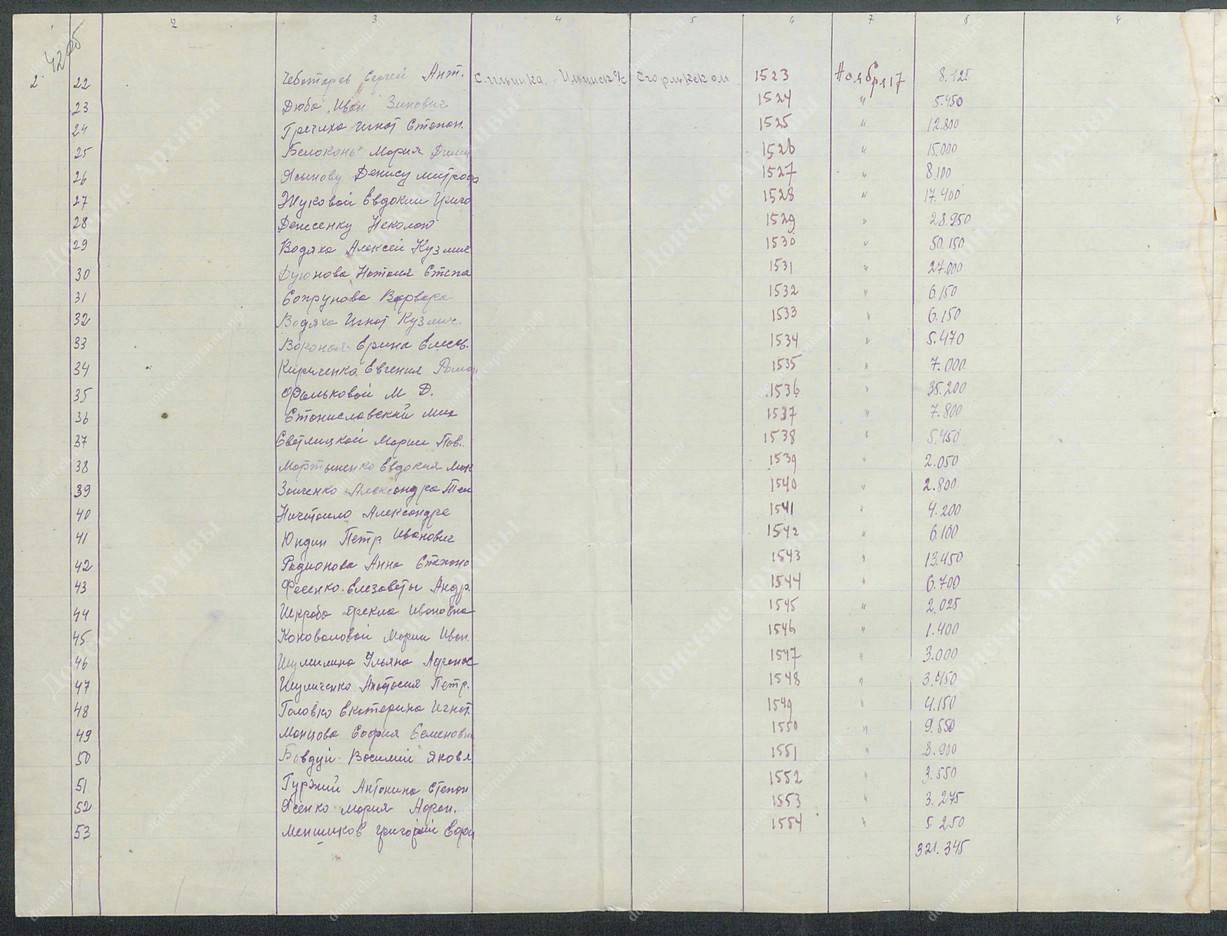 1 2 3 4 5 6 7 8 9
2 22 Чеботарев Сергей Ант. 1523 Ноября 17 8.125
23 Дюба Иван Зинович 1524 " 5.450
24 Гречиха Игнат Степан. 1525 " 12.800
25 Белоконь Мария 1526 " 15.000
26 Денису Митроф 1527 " 8.100
27 Жуковой Евдокии Григо 1528 " 17.400
28 Денисенку Неколаю 1529 " 28.950
29 Водяха Алексей Кузмич 1530 " 50.150
30 Наталия Степа 1531 " 27.000
31 Сопрунова Варвара 1532 " 6.150
32 Водяха Игнат Кузмич. 1533 " 6.150
33 Ерина Елисев. 1534 " 5.470
34 Кириченко Евгения Роман 1535 " 7.000
35 Фальковой М Д. 1536 " 35.200
36 Станиславский Мих 1537 " 7.800
37 Светлицкой Марии Пав. 1538 " 5.450
38 Мартыненко Евдокия 1539 " 2.050
39 Заиченко Александра 1540 " 2.800
40 Александра 1541 " 4.200
41 Юндин Петр Иванович 1542 " 6.100
42 Радионова Анна Степано 1543 " 13.450
43 Фесенко Елизаветы Андр 1544 " 6.700
44 Шкроба Фекла Ивановна 1545 " 2.025
45 Коноваловой Марии Иван 1546 " 1.400
46 Шумилина Ульяна Афонас 1547 " 3.000
47 Шуличенко Анастасия Петр. 1548 " 3.450
48 Головко Екатерина Игнат 1549 " 4.150
49 София Семеновна 1550 " 9.550
50 Бовдуй Василий Яковл 1551 " 3.900
51 Гуржий Антонина Степан 1552 " 3.550
52 Ясенко Мария Афан. 1553 " 3.275
53 Меншиков Григорий 1554 " 5.250
321.345